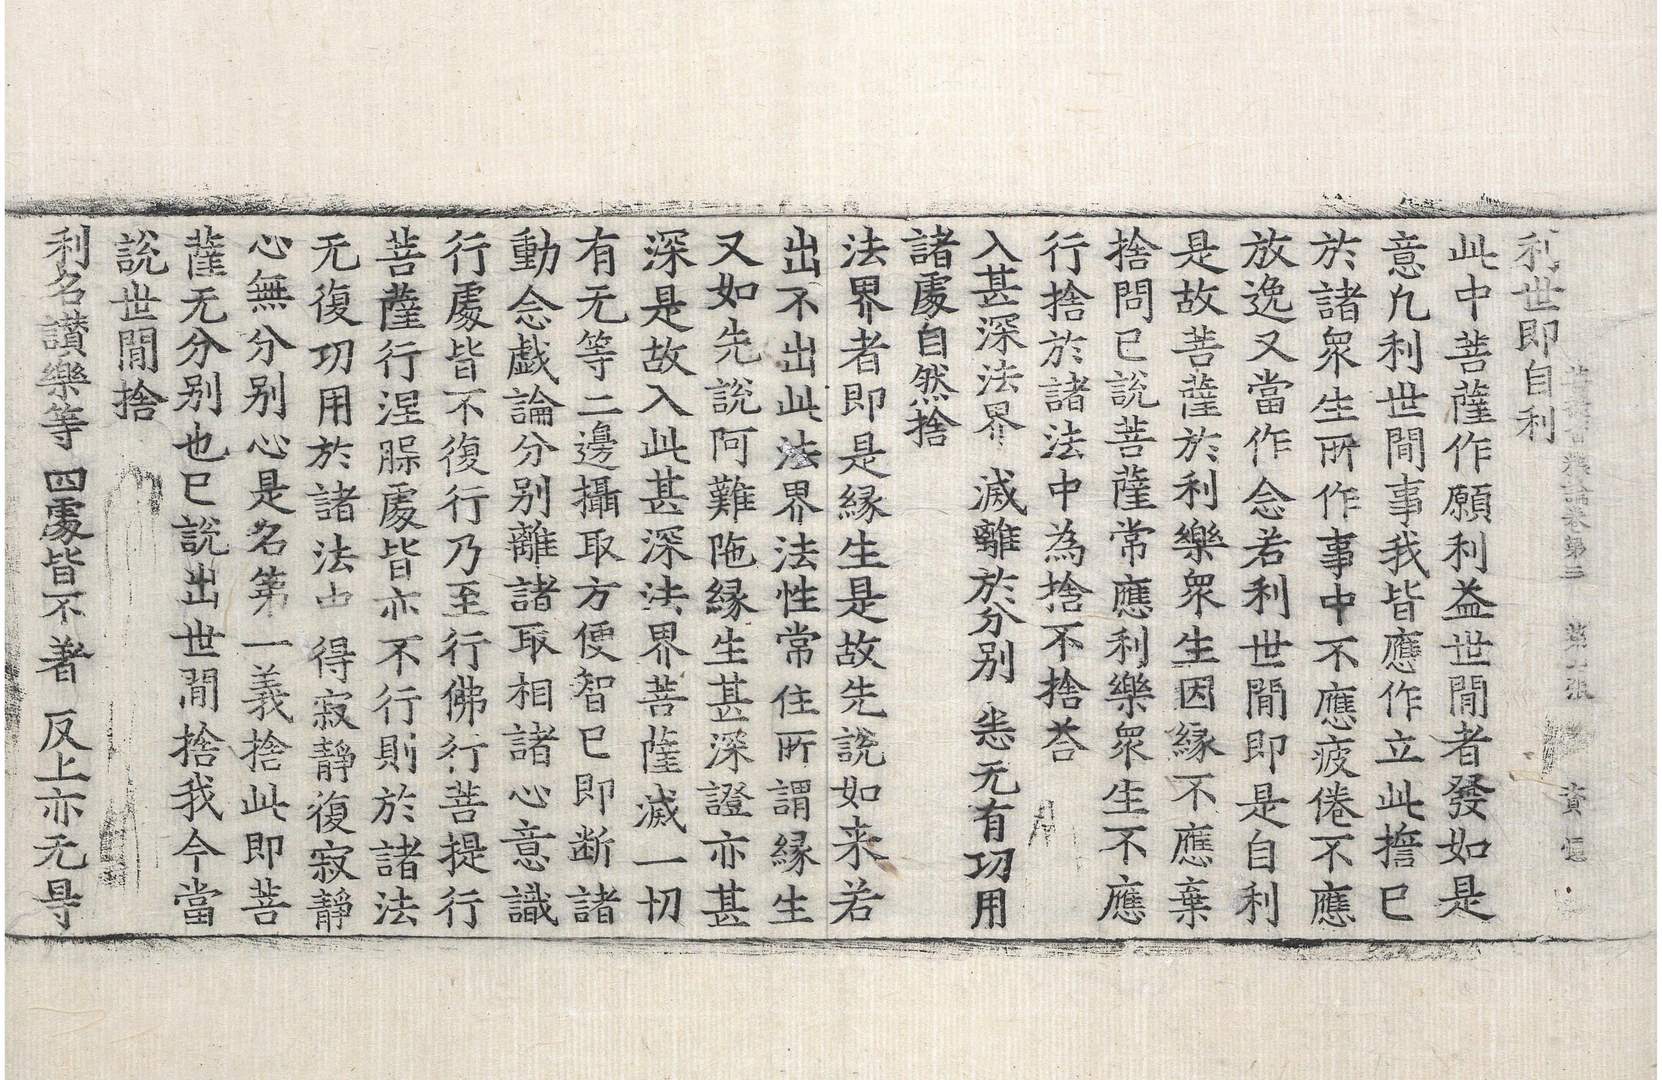 菩提資糧論卷第三　第　張　　資　恒
利世即自利
此中菩薩作願利益世間者發如是
意凢利世間事我皆應作立此擔已
於諸衆生所作事中不應疲倦不應
放逸又當作念若利世間即是自利
是故菩薩於利樂衆生因緣不應棄
捨問已說菩薩常應利樂衆生不應
行捨於諸法中為捨不捨荅
入甚深法界　滅離於分别　恙无有㓛用
諸處自然捨
法界者即是緣生是故先說如来若
出不出此法界法性常住所謂緣生
又如先說阿難陁緣生甚深證亦甚
深是故入此甚深法界菩薩滅一切
有无等二邊攝取方便智已即断諸
動念戱論分别離諸取相諸心意識
行處皆不復行乃至行佛行菩提行
菩薩行涅槃處皆亦不行則於諸法
无復㓛用於諸法中得寂靜復寂靜
心無分别心是名第一義捨此即菩
薩无分别也已說出世間捨我今當
說世間捨
利名讃樂等　四處皆不著　反上亦无㝵